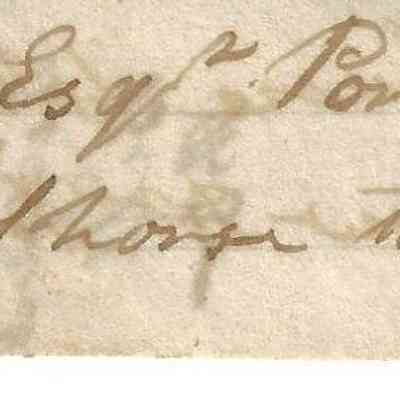 Esqr. Pon
horse